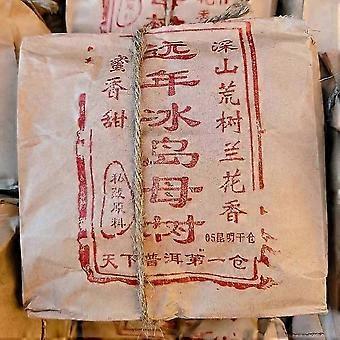 深山荒树兰花香
远年冰岛母树
蜜香甜
私改原料
05昆明干仓
天下普洱第一仓